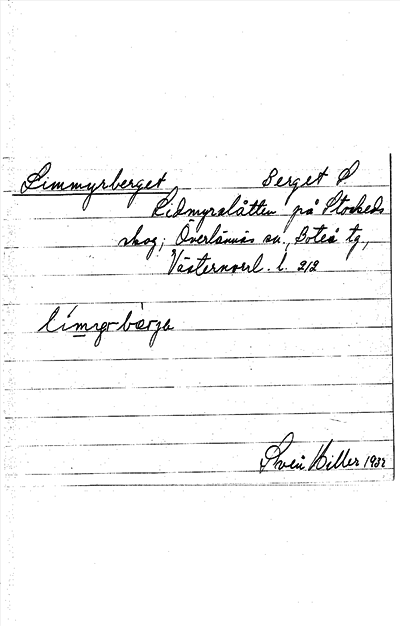 Limmyrberget berget S
Lidmyrslåtten på Stockeds
skog; Överlännäs sn., Boteå tg,
Västernorrl. l. 212
límyr-bärjə
Sven Hiller 1932